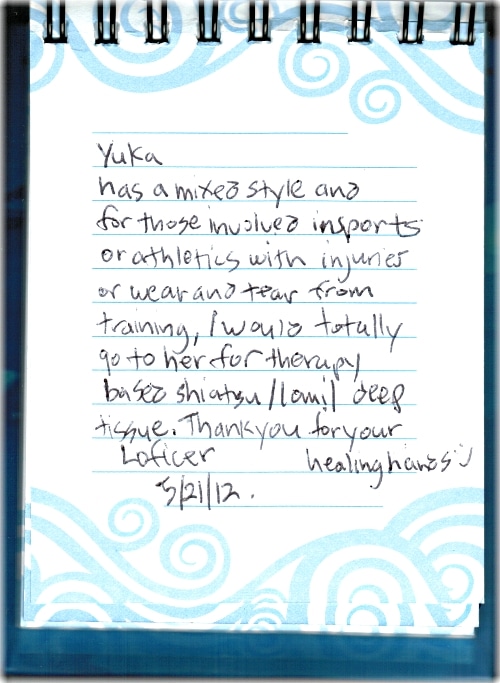 Yuka
has a mixed style and
for those involved in sports
or athletics with injuries
or wear and tear from
training, I would totally
go to her for therapy
based shiatsu/lomi/ deep
tissue. Thank you for your
healing hands :)
5/21/12.